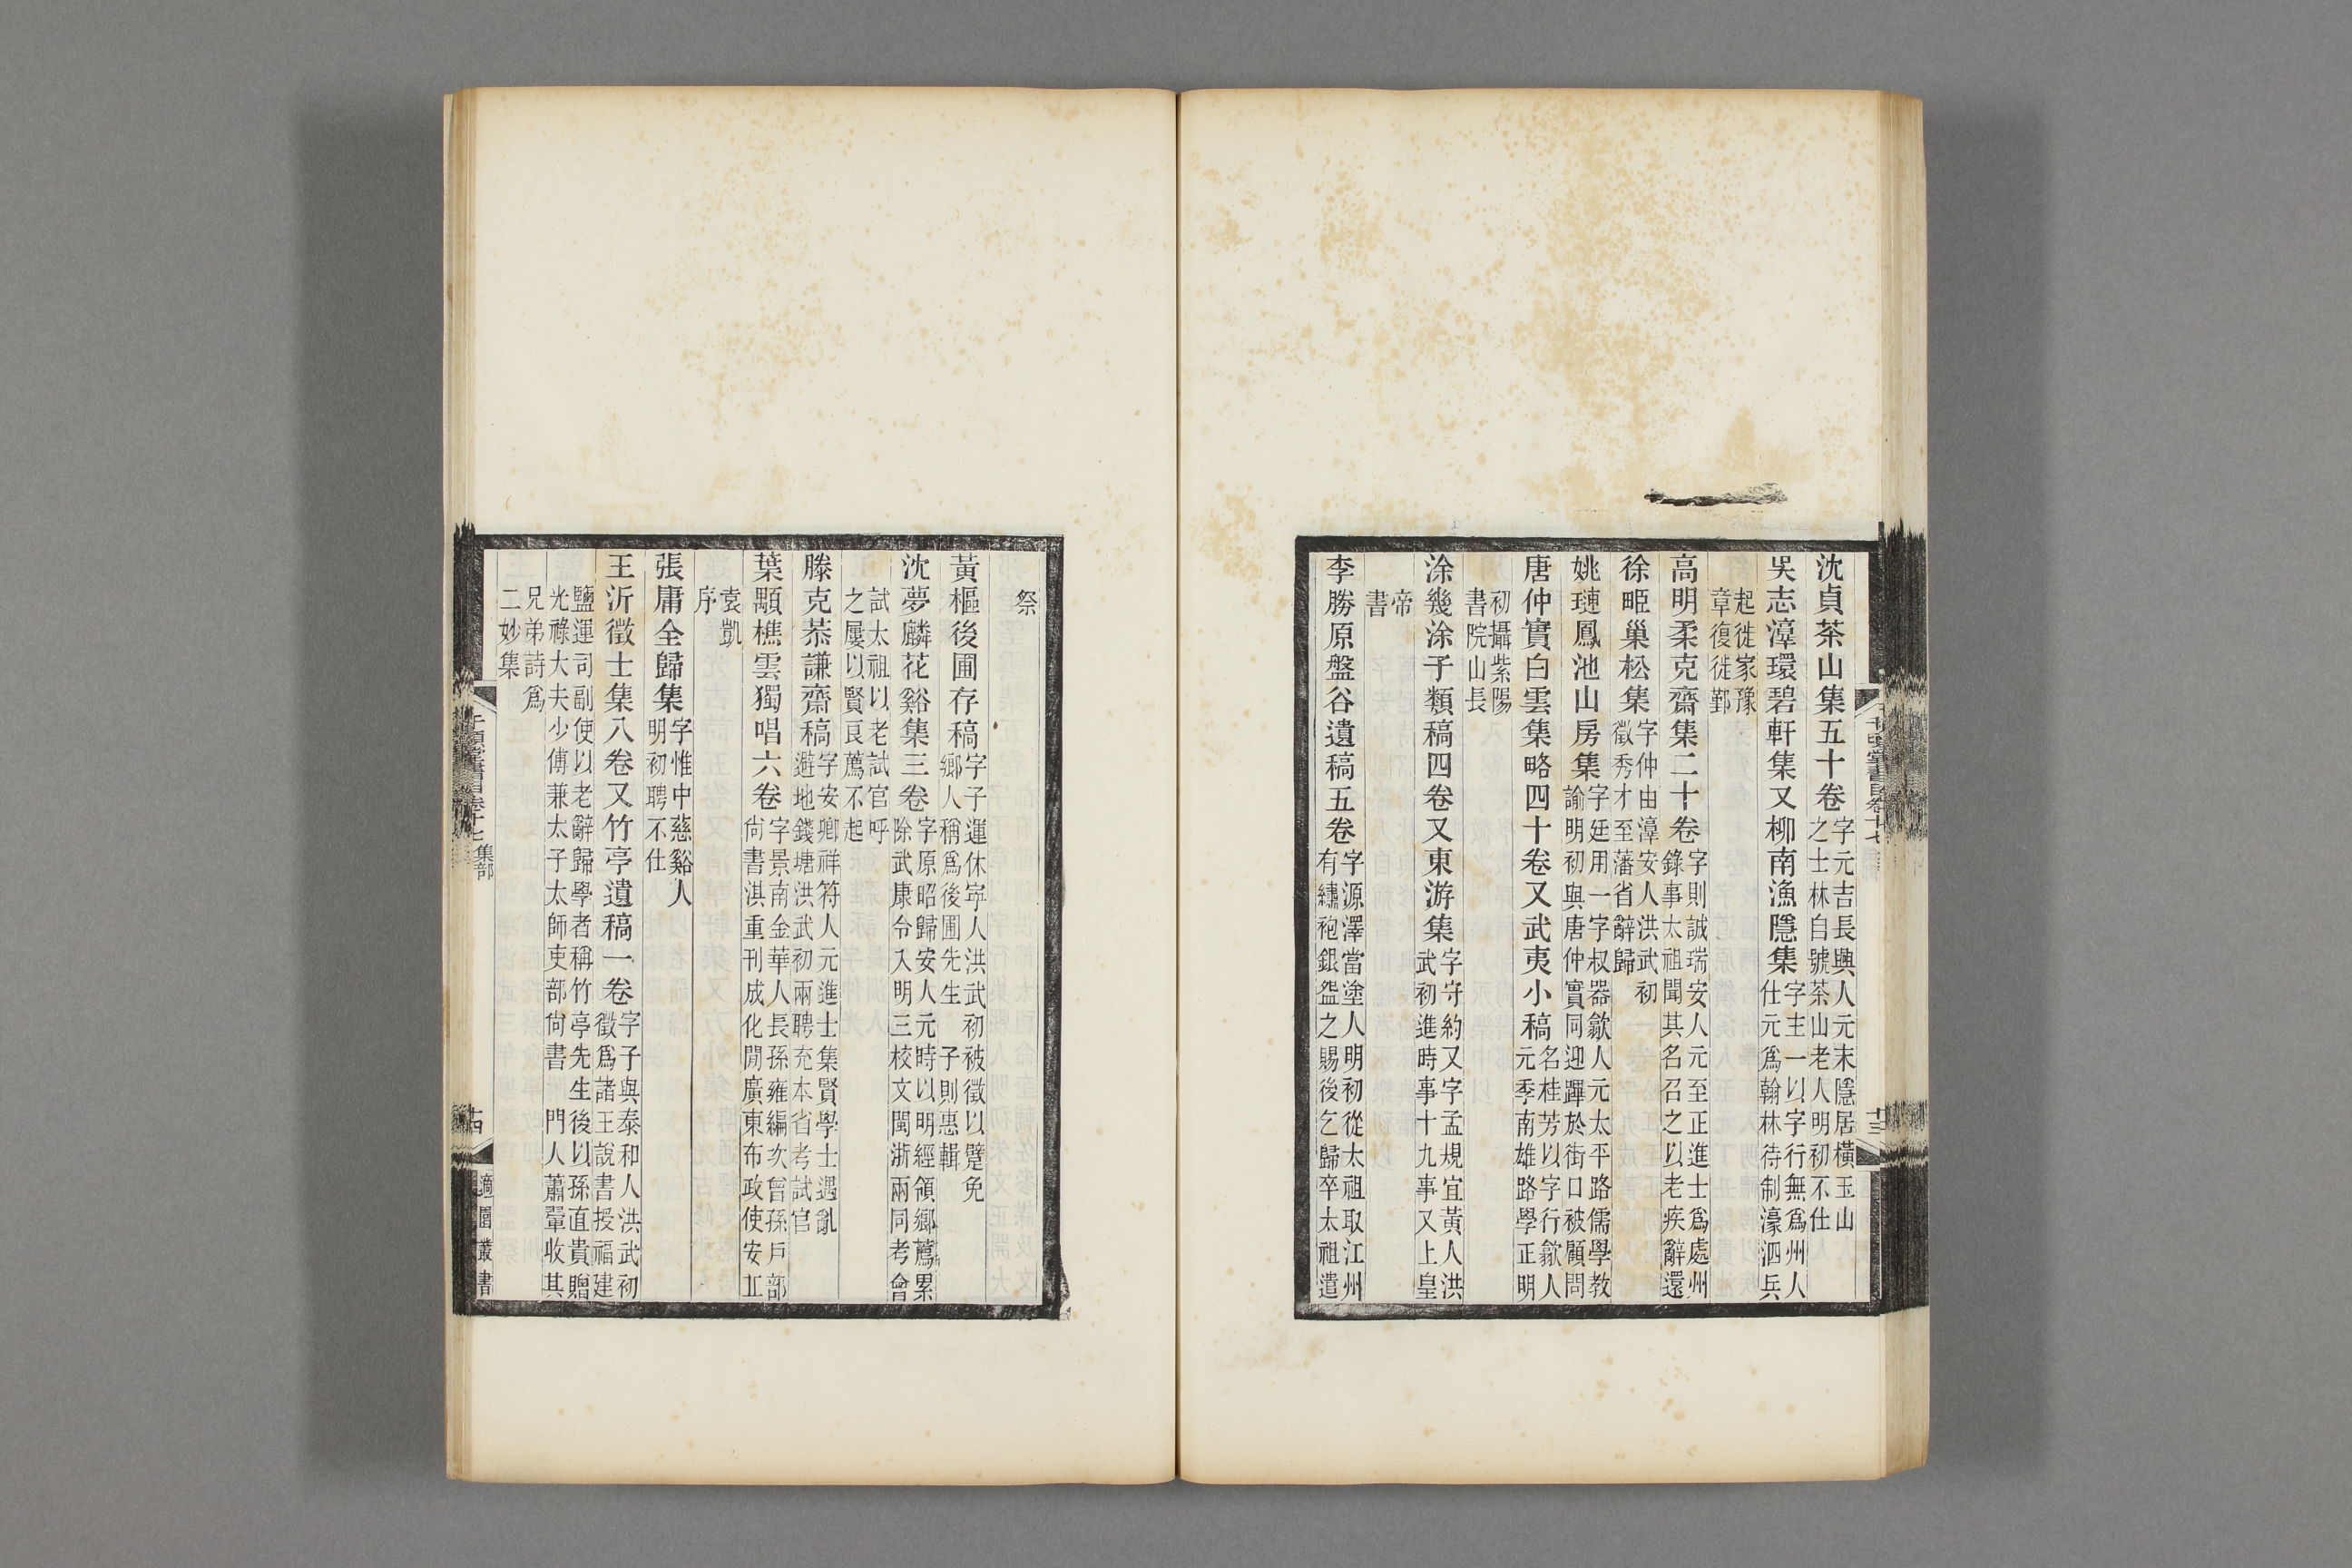 沈貞茶山集五十卷字元吉長興人元末隱居橫玉山之士林自號茶山老人明初不仕
吳志漳環碧軒集又柳南漁隱集字主一以字行無爲州人仕元爲翰林待制濠泗兵
起徙家豫章復徙鄞
高明柔克齋集二十卷字則誠瑞安人元至正進士爲處州錄事太祖聞其名召之以老疾辭還
徐㽦巢松集字仲由漳安人洪武初徵秀才至藩省辭歸
姚璉鳳池山房集字廷用一字叔器歙人元太平路儒學教諭明初與唐仲實同迎蹕於街口被顧問
唐仲實白雲集略四十卷又武夷小稿名桂芳以字行歙人元季南雄路學正明
初攝紫陽書院山長
涂幾涂子類稿四卷又東游集字守約又字孟規宜黃人洪武初進時事十九事又上皇
帝書
李勝原盤谷遺稿五卷字源澤當塗人明初從太祖取江州有繡袍銀盌之賜後乞歸卒太祖遣
千頃堂書目卷十七
十三
祭
黃樞後圃存稿字子運休寧人洪武初被徵以躄免鄉人稱爲後圃先生 子則惠輯
沈夢麟花谿集三卷字原昭歸安人元時以明經領鄉薦累除武康令入明三校文閩浙兩同考會
試太祖以老試官呼之屢以賢良薦不起
滕克恭謙齋稿字安卿祥符人元進士集賢學士遇亂避地錢塘洪武初兩聘充本省考試官
葉顒樵雲獨唱六卷字景南金華人長孫雍編次曾孫戶部尙書淇重刊成化閒廣東布政使安𠀋
袁凱序
張庸全歸集字惟中慈谿人明初聘不仕
王沂徵士集八卷又竹亭遺稿一卷字子與泰和人洪武初徵爲諸王說書授福建
鹽運司副使以老辭歸學者稱竹亭先生後以孫直貴贈光祿大夫少傅兼太子太師吏部尙書 門人蕭翬收其
兄弟詩爲二妙集
千頃堂書目卷十七 集部
十四
適園叢書